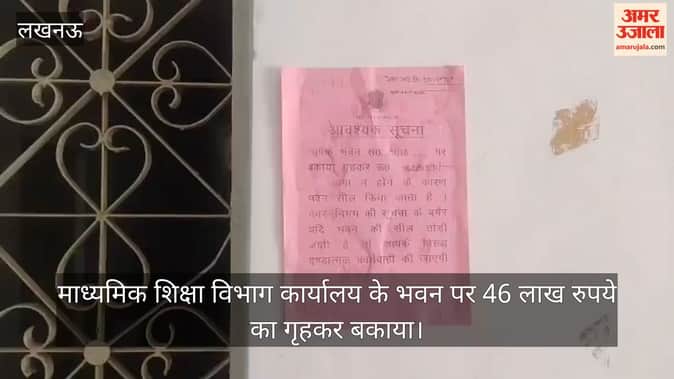 लखनऊ
अमर
उजाला
amarujala.com
आवश्यक सूचना
भवन पर
बकाया गृहकर
न होने के कारण
भवन सील किया जाता है ।
की सूचना के बगैर
यदि भवन की सील तोड़ी
जाती है तो आपके विरुद्ध
दण्डात्मक कार्यवाही की जाएगी
माध्यमिक शिक्षा विभाग कार्यालय के भवन पर 46 लाख रुपये
का गृहकर बकाया।